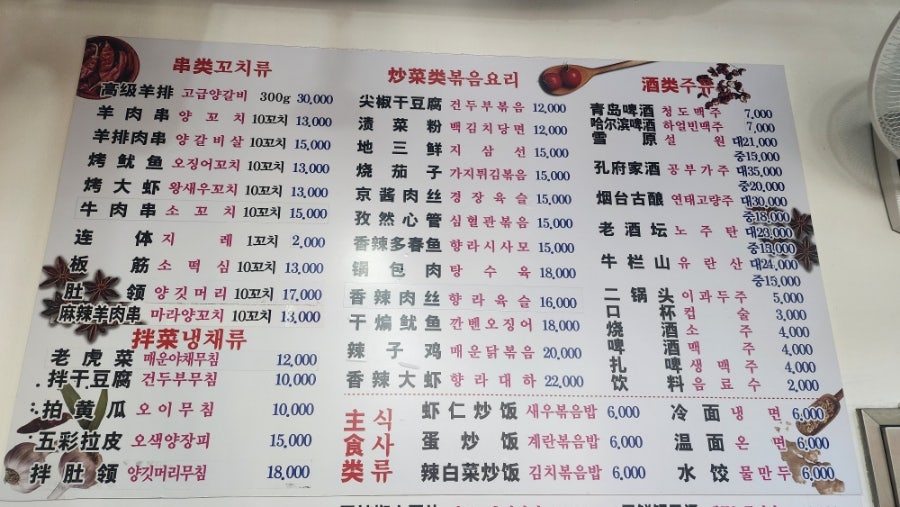 串类꼬치류
高级羊排 고급양갈비 300g 30,000
羊肉串 양꼬치 10꼬치 13,000
羊排肉串 양갈비살 10꼬치 15,000
烤鱿鱼 오징어꼬치 10꼬치 13,000
烤大虾 왕새우꼬치 10꼬치 13,000
牛肉串 소꼬치 10꼬치 15,000
连体 지레 1꼬치 2,000
板筋 소떡심 10꼬치 13,000
肚领 양깃머리 10꼬치 17,000
麻辣羊肉串 마라양꼬치 10꼬치 13,000
拌菜냉채류
老虎菜 매운야채무침 12,000
拌干豆腐 건두부무침 10,000
拍黄瓜 오이무침 10,000
五彩拉皮 오색양장피 15,000
拌肚领 양깃머리무침 18,000
炒菜类볶음요리
尖椒干豆腐 건두부볶음 12,000
渍菜粉 백김치당면 12,000
地三鲜 지삼선 15,000
烧茄子 가지튀김볶음 15,000
京酱肉丝 경장육슬 15,000
孜然心管 심혈관볶음 15,000
香辣多春鱼 향라시사모 15,000
锅包肉 탕수육 18,000
香辣肉丝 향라육슬 16,000
干煸鱿鱼 깐벤오징어 18,000
辣子鸡 매운닭볶음 20,000
香辣大虾 향라대하 22,000
酒类주류
青岛啤酒 청도맥주 7,000
哈尔滨啤酒 하얼빈맥주 7,000
雪原 설원 대21,000
중15,000
孔府家酒 공부가주 대35,000
중20,000
烟台古酿 연태고량주 대30,000
중18,000
老酒坛 노주탄 대23,000
중13,000
牛栏山 유란산 대24,000
중15,000
二锅头 이과두주 5,000
口杯 컵술 3,000
烧酒 소주 4,000
啤酒 맥주 4,000
扎啤 생맥주 4,000
饮料 음료수 2,000
主食类 식사류
虾仁炒饭 새우볶음밥 6,000
蛋炒饭 계란볶음밥 6,000
辣白菜炒饭 김치볶음밥 6,000
冷面 냉면 6,000
温面 온면 6,000
水饺 물만두 6,000